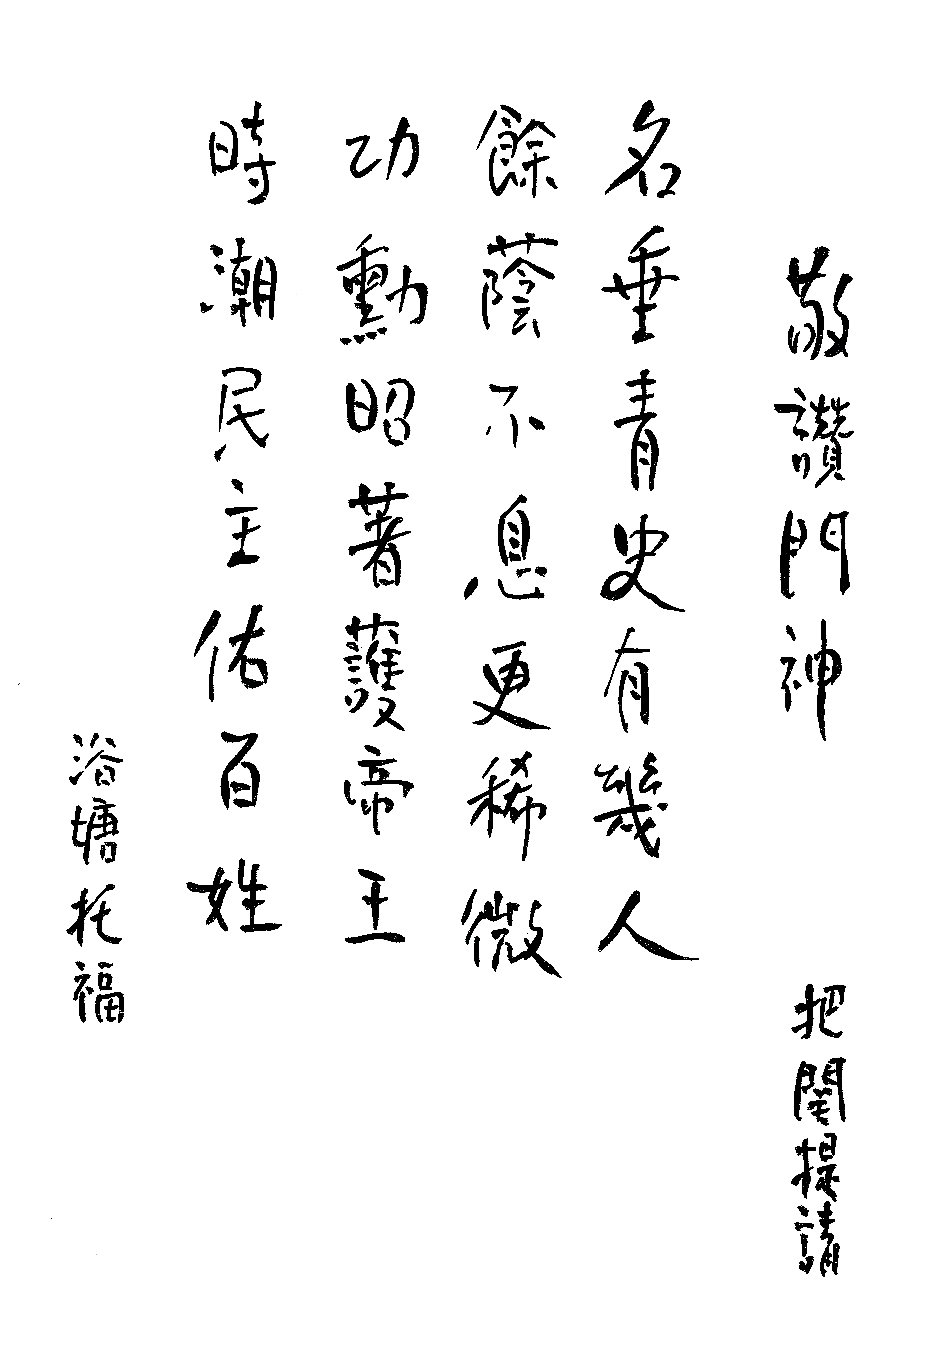 敬讚門神
把關提請
名垂青史有幾人
餘蔭不息更稀微
功勳昭著護帝王
時潮民主佑百姓
浴塘托福